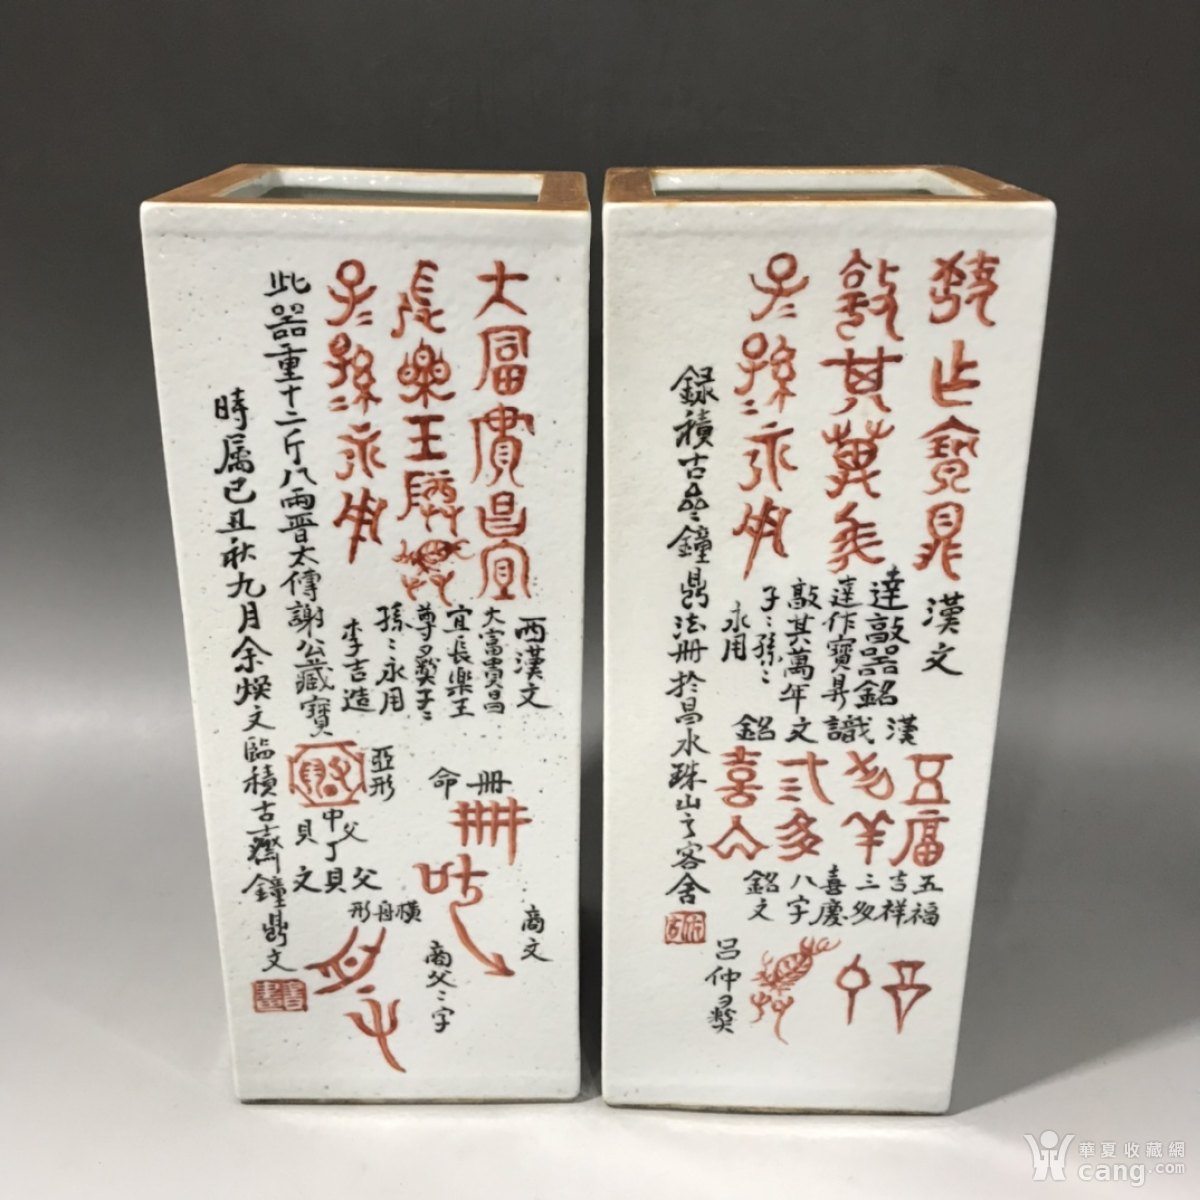 大富貴昌宜
長樂王
子二孫二永用
西漢文
大富貴昌
宜長樂王
尊彝子二
孫二永用
李吉造
此器重十二斤八兩晋太傅謝公藏寶
時属己丑秋九月余焕文臨積古齋鐘鼎文
亞形
中父
貝丁
父貝文
冊命
商文
横舟形
商父二字
達作寶鼎
敲其萬年
子二孫二永用
漢文
達敲器銘
達作寶鼎
敲其萬年
子二孫二
永用
漢識文銘
五福
吉羊
三多
喜
五福
吉祥
三多
喜慶
八字
銘文
吕仲彝
録積古齋鐘鼎法册於昌水珠山之客舍
華夏收藏網
cang.com